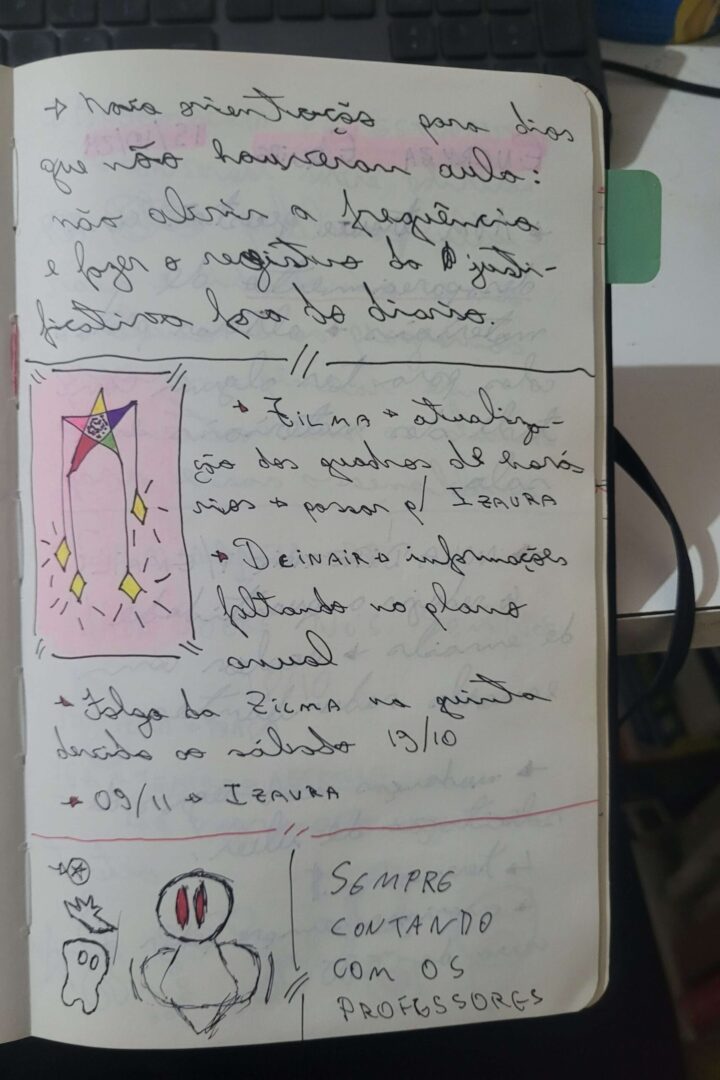 → Nova orientação para dias
que não houveram aula:
não abrir a frequência
e fazer o registro da justi-
ficativa fora do diário.
→ ZILMA → atualiza-
ção dos quadros de horá
rios → passar p/ IZAURA
→ DEINAIR → informações
faltando no plano
anual
→ Folga da ZILMA na quinta
devido ao sábado 19/10
→ 09/11 → IZAURA
SEMPRE
CONTANDO
COM OS
PROFESSORES